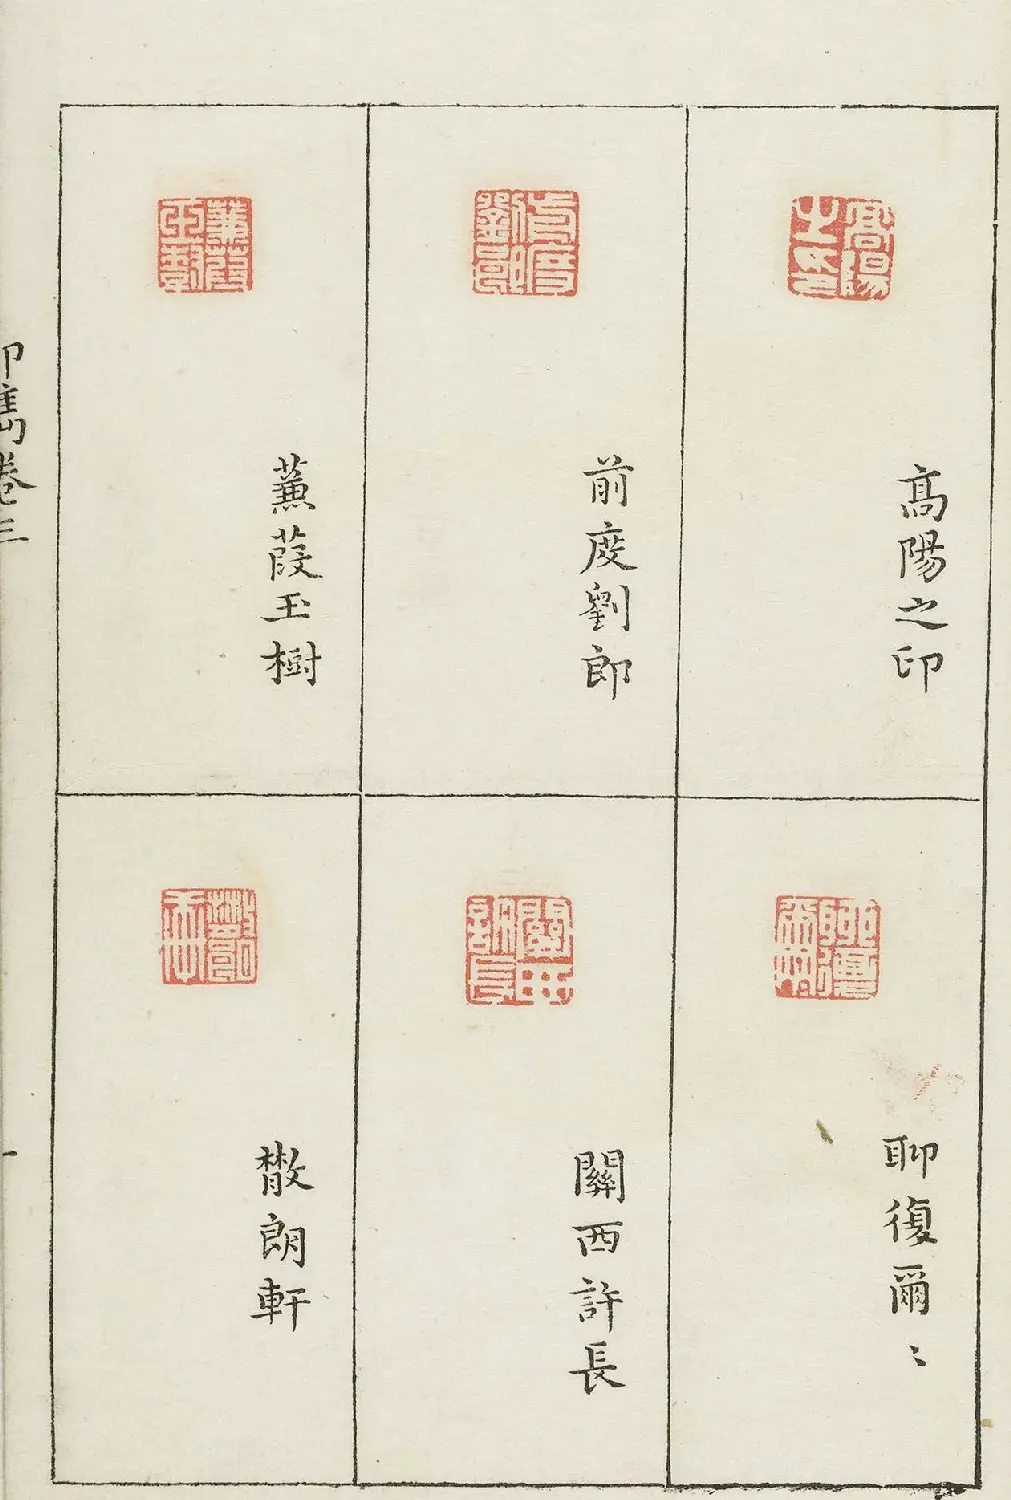 髙陽之印
前度劉郎
蒹葭玉樹
聊復爾〻
關西許長
散朗軒
印雋卷三
一